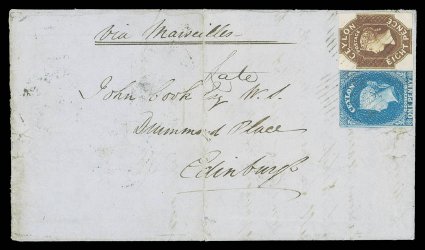 via Marseilles
Late
John Cook Esq W.S.
Drummd Place
Edinburgh
CEYLON
POSTAGE
EIGHT PENCE
CEYLON
ONE PENNY